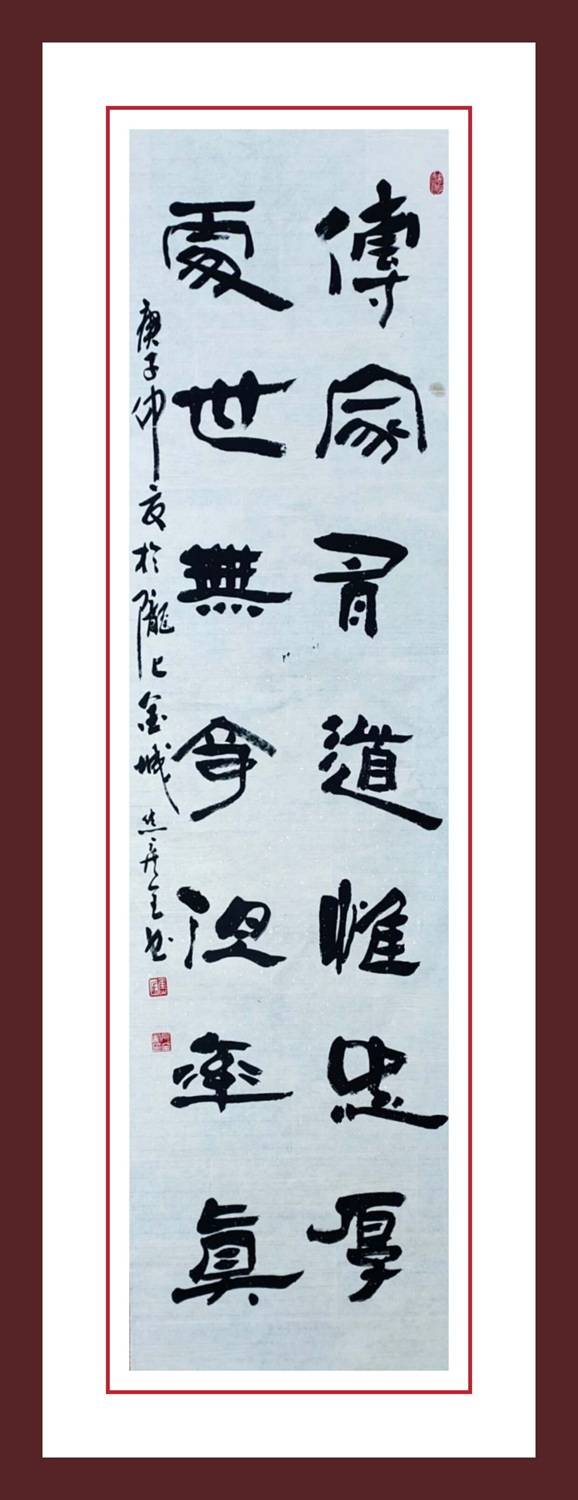 傳家有道惟忠厚
處世無奇但率真
庚子仲夏於隴上金城